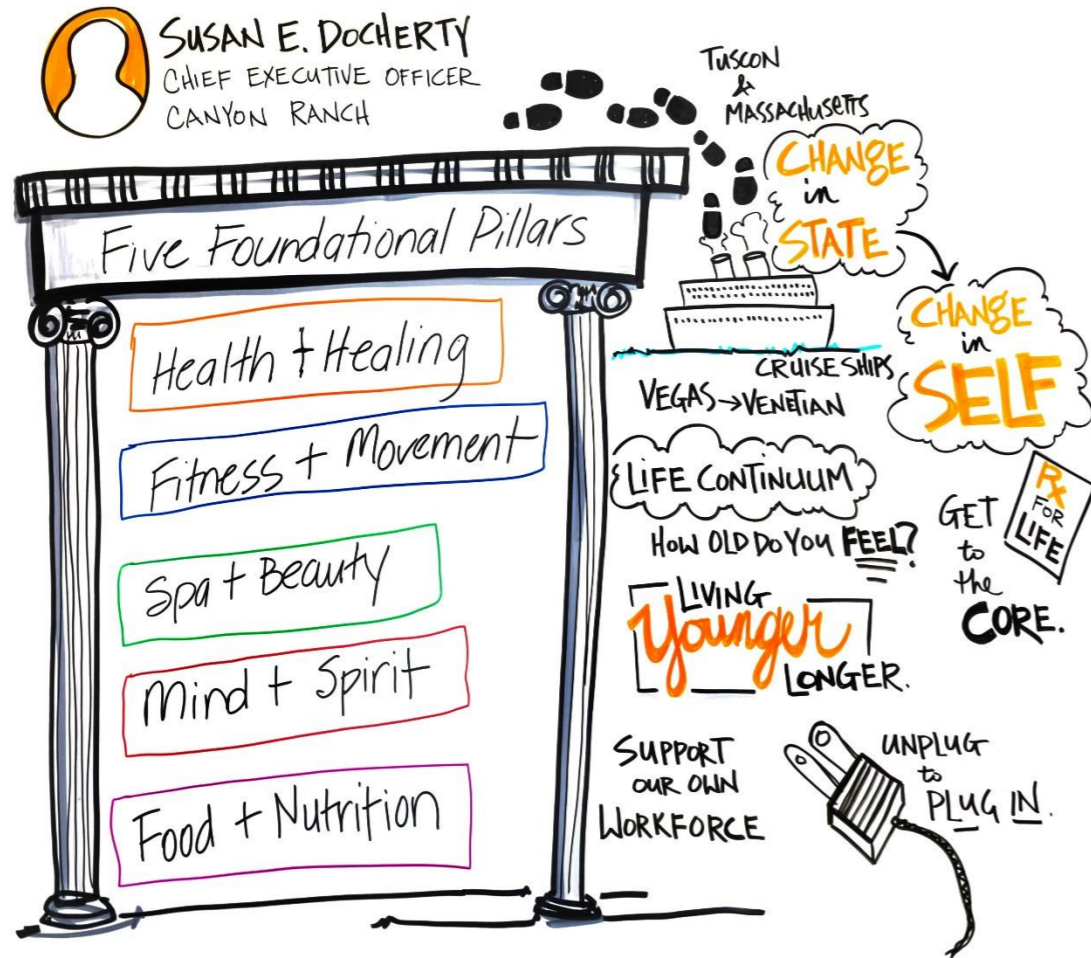 SUSAN E. DOCHERTY
CHIEF EXECUTIVE OFFICER
CANYON RANCH
Five Foundational Pillars
Health + Healing
Fitness + Movement
Spa + Beauty
Mind + Spirit
Food + Nutrition
TUSCON
&
MASSACHUSETTS
CHANGE
in
STATE
CHANGE
in
SELF
CRUISE SHIPS
VEGAS → VENETIAN
LIFE CONTINUUM
HOW OLD DO YOU FEEL?
LIVING
Younger
LONGER.
Rx
FOR
LIFE
GET
to
the
CORE.
SUPPORT
OUR OWN
WORKFORCE
UNPLUG
to
PLUG IN.